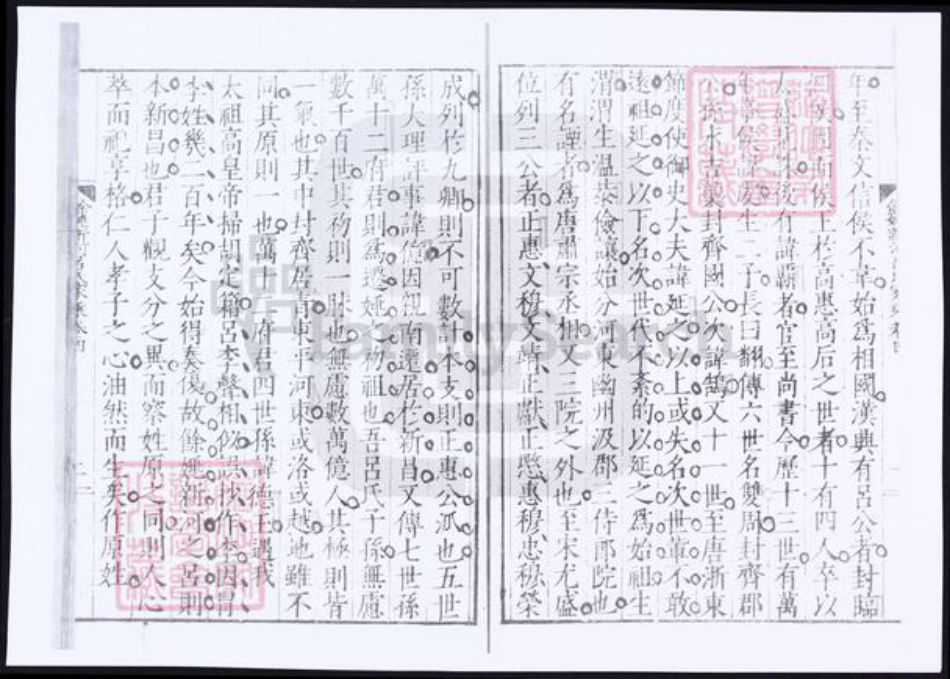 年至秦文信侯不韋始爲相國漢興有呂公者封臨
侯因而侯王於高惠高后之世者十有四人卒以
後有諱霸者官至尚書令歷十三世有萬
年生二子長曰翻傳六世名雙周封齊郡
公 封齊國公次諱鵠又十一世至唐浙東
節度使御史大夫諱延之以上或失名次世輩不敢
遠祖延之以下名次世代不紊的以延之爲始祖生
渭渭生温恭儉讓始分河東幽州汲郡三侍郎院也
有名諲者爲唐肅宗丞相又三院之外也至宋尤盛
位列三公者正惠文穆文靖正獻正愍惠穆忠穆榮
成列於九卿則不可數計本支則正惠公派也五世
孫大理評事諱 因視南遷居於新昌又傳七世孫
萬十二府君則爲遷 之初祖也吾呂氏子孫無慮
數千百世其初則一脉也無慮數萬億人其極則皆
一氣也其中封齊居青東平河東或洛或越地雖不
同其原則一也萬十二府君四世孫諱德王遇我
太祖高皇帝掃胡定籍呂李聲相似誤 作李因冐
李姓幾二百年矣今始得奏復故餘姚新河之呂則
本新昌也君子觀支分之異而察姓原之同則人心
萃而祀享格仁人孝子之心油然而生矣作原姓